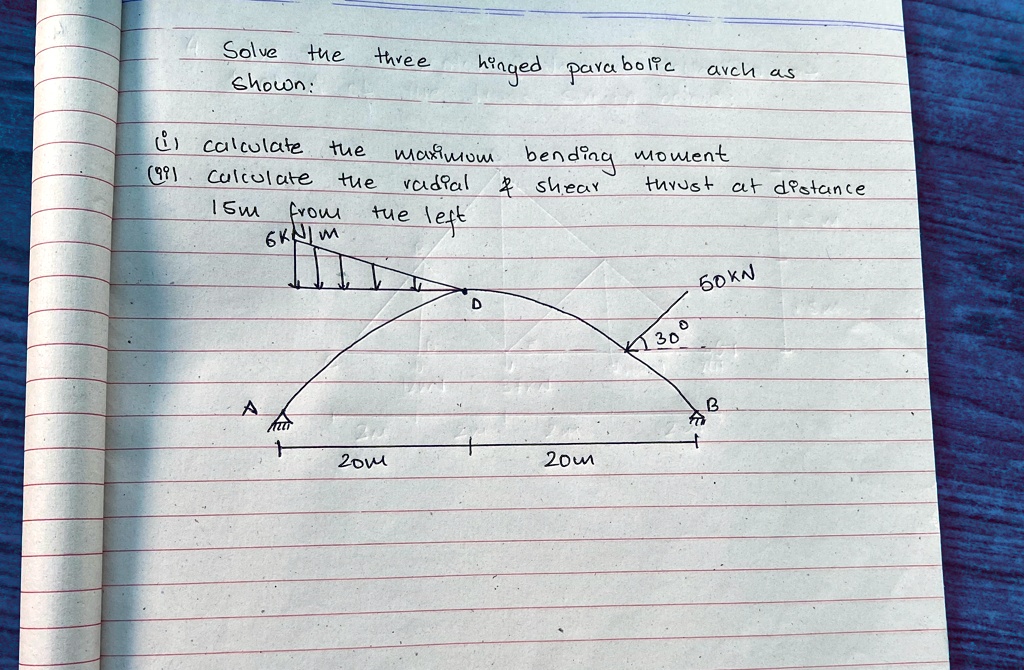 Solve the three hinged parabolic arch as
shown:
(i) calculate the maximum bending moment
(ii) calculate the radial & shear thrust at distance
15m from the left
6KN/m
50KN
D
30°
A
B
20m
20m